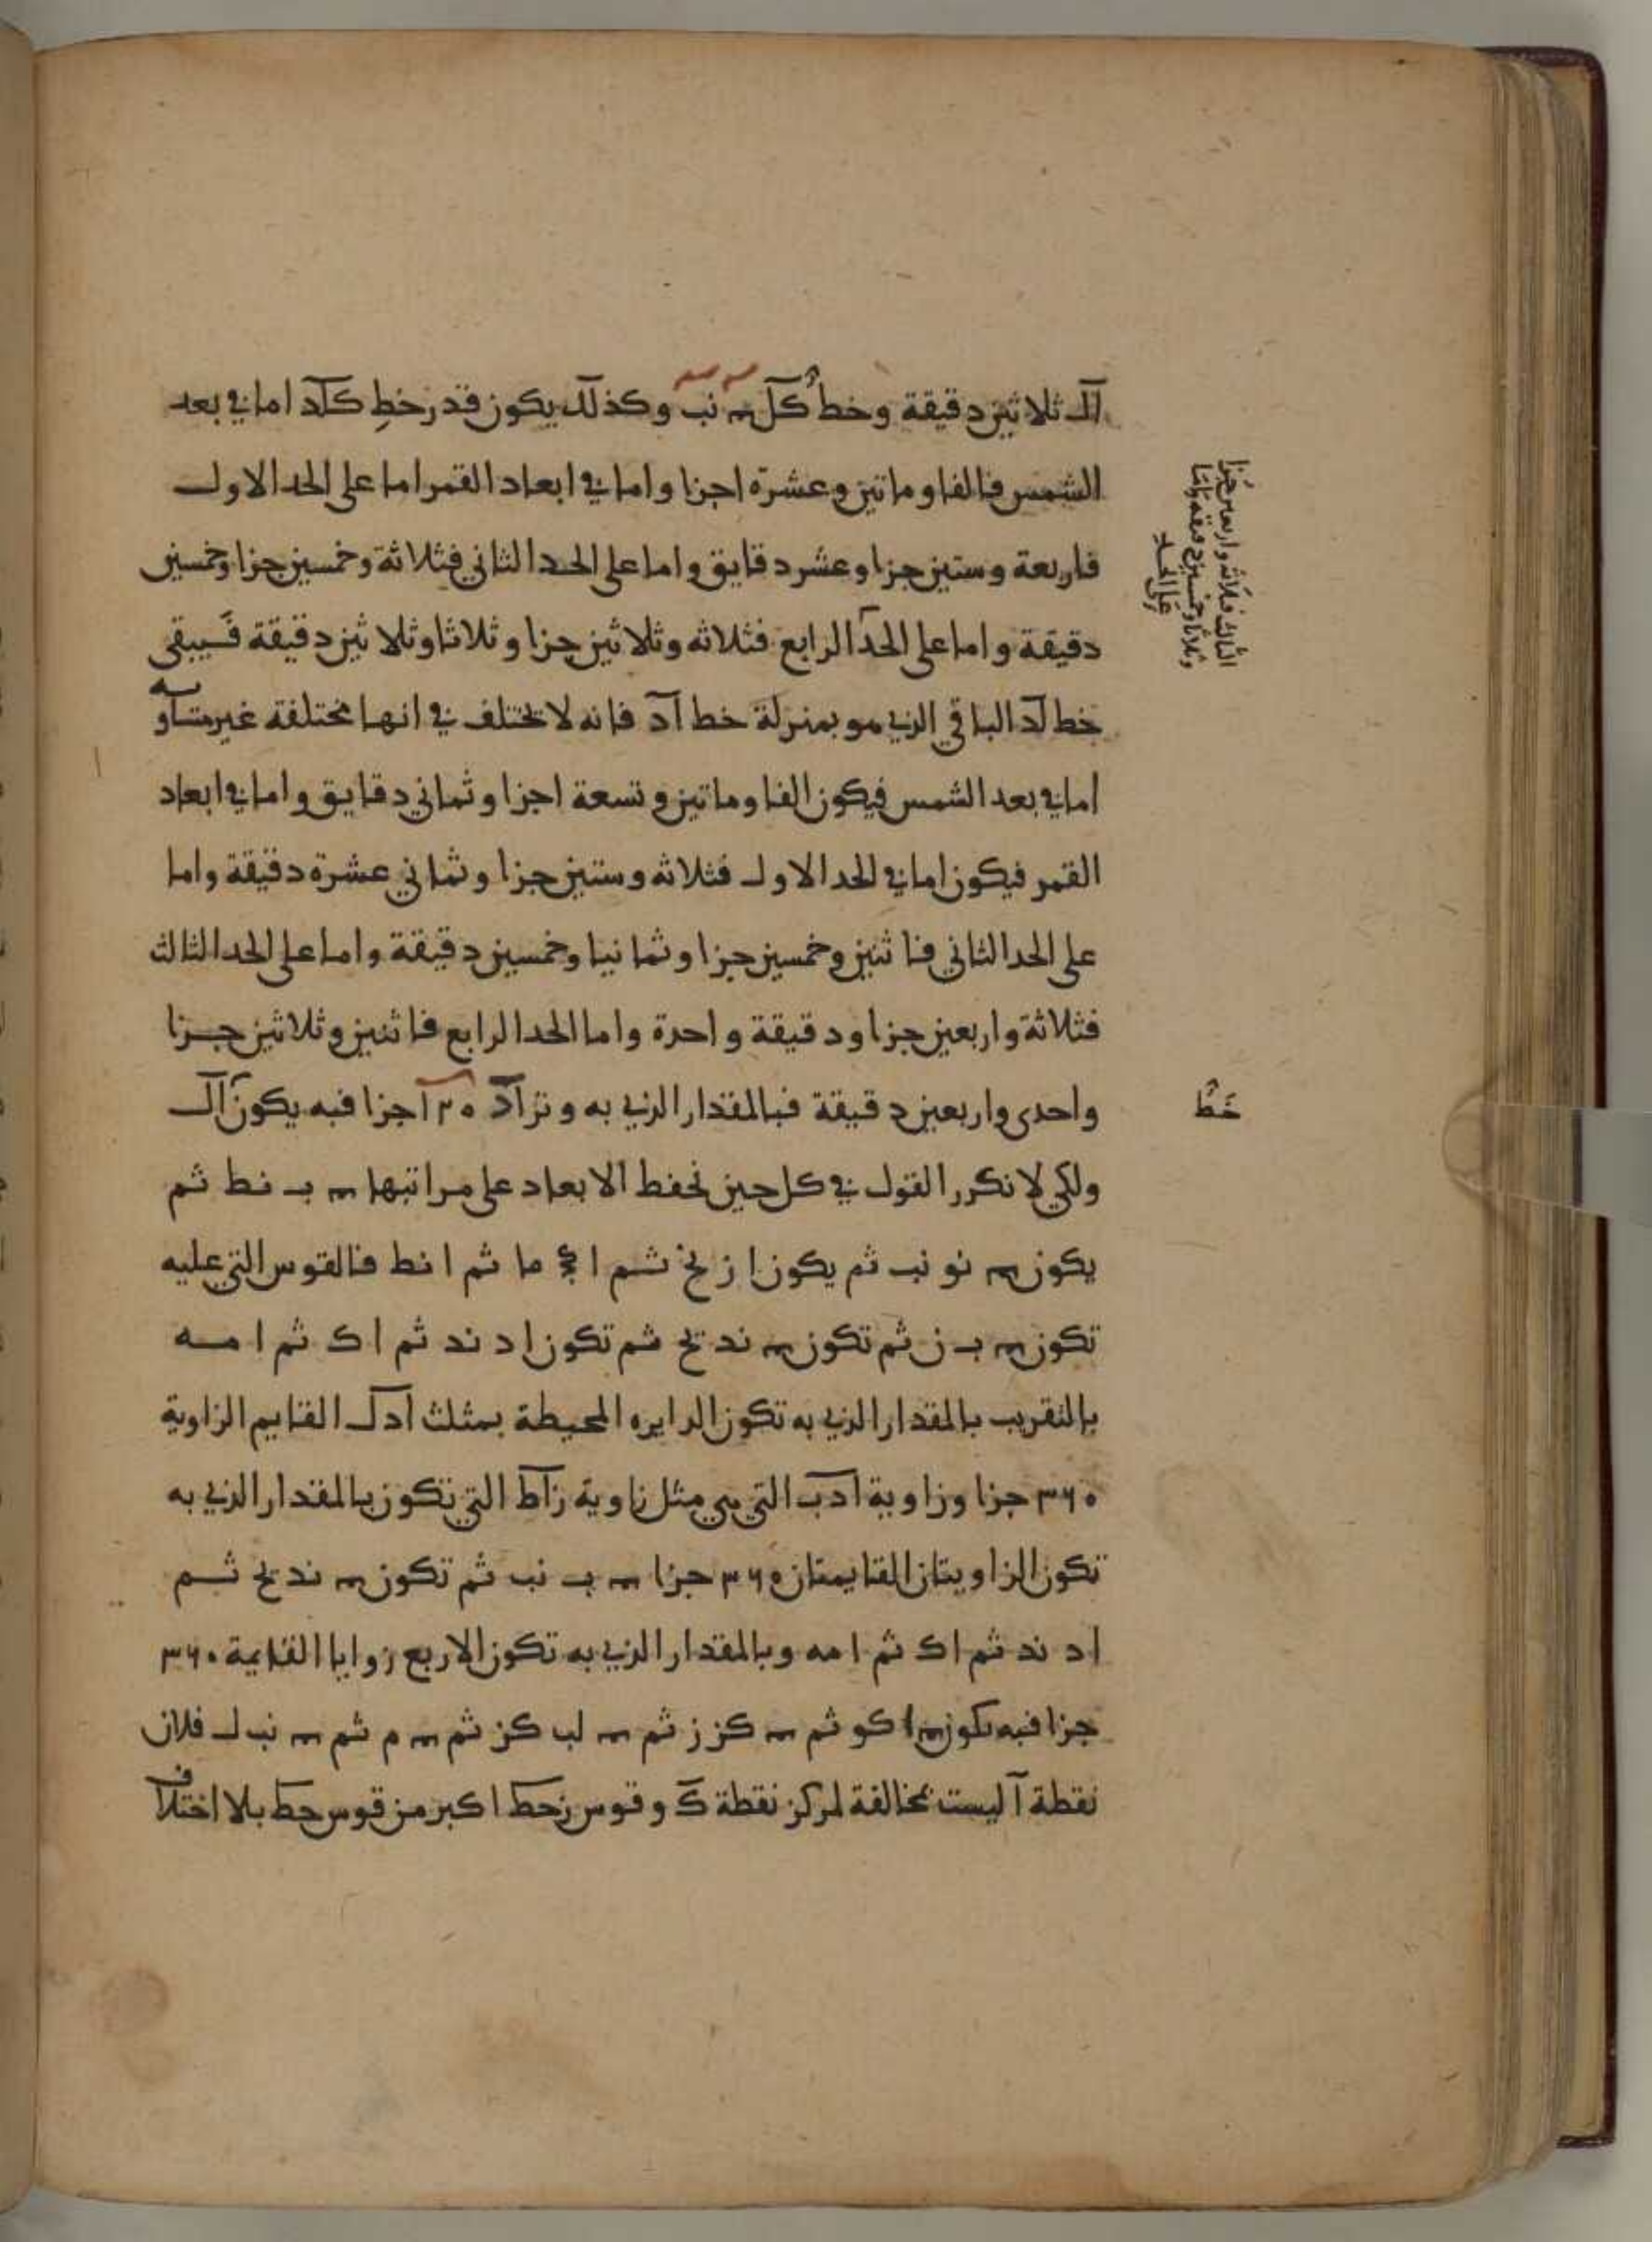 آك ثلاثين دقيقة وخط كل نب وكذلك يكون قدر خط كد اما في بعد
الشمس فالفا وماتين وعشرة اجزا واما في ابعاد القمر اما على الحد الاول
فاربعة وستين جزا وعشر دقايق واما على الحد الثاني فثلاثة وخمسين جزا وخمسين
دقيقة واما على الحد الرابع فثلاثه وثلاثين جزا وثلاثا وثلاثين دقيقة فيبقى
خط لد الباقي الذي هو بمنزلة خط آد فانه لا يختلف في انها مختلفة غير متساويه
اما في بعد الشمس فيكون الفا وماتين وتسعة اجزا وثماني دقايق واما في ابعاد
القمر فيكون اما في الحد الاول فثلاثه وستين جزا وثماني عشرة دقيقة واما
على الحد الثاني فاثنين وخمسين جزا وثمانيا وخمسين دقيقة واما على الحد الثالث
فثلاثة واربعين جزا ودقيقة واحدة واما الحد الرابع فاثنين وثلاثين جزا
واحدى واربعين دقيقة فبالمقدار الذي به وتر آد اجزا فبه يكون آك
ولكي لا نكرر القول في كل حين نحفظ الابعاد على مراتبها ب نط ثم
يكون نو نب ثم يكون ا ز نح ثم ا ما ثم ا نط فالقوس التي عليه
تكون ب ن ثم تكون ند يح ثم تكون ا د ند ثم ا ك ثم ا مه
بالتقريب بالمقدار الذي به تكون الدايره المحيطة بمثلث ادك القايم الزاوية
٣٦٠ جزا وزاوية ادب التي هي مثل زاوية زاط التي تكون بالمقدار الذي به
تكون الزاويتان القايمتان ٣٦٠ جزا ب نب ثم تكون ند يح ثم
ا د ند ثم ا ك ثم ا مه وبالمقدار الذي به تكون الاربع زوايا القايمة ٣٦٠
جزا فبه تكون ا كو ثم كز ز ثم لب كز ثم م ثم نب ل فلان
نقطة آ ليست مخالفة لمركز نقطة ك وقوس زحط اكبر من قوس حط بلا اختلاف
الثالث فثلاثه واربعين جزا
وثلاثا وخمسين دقيقه واما
على الحد
خط